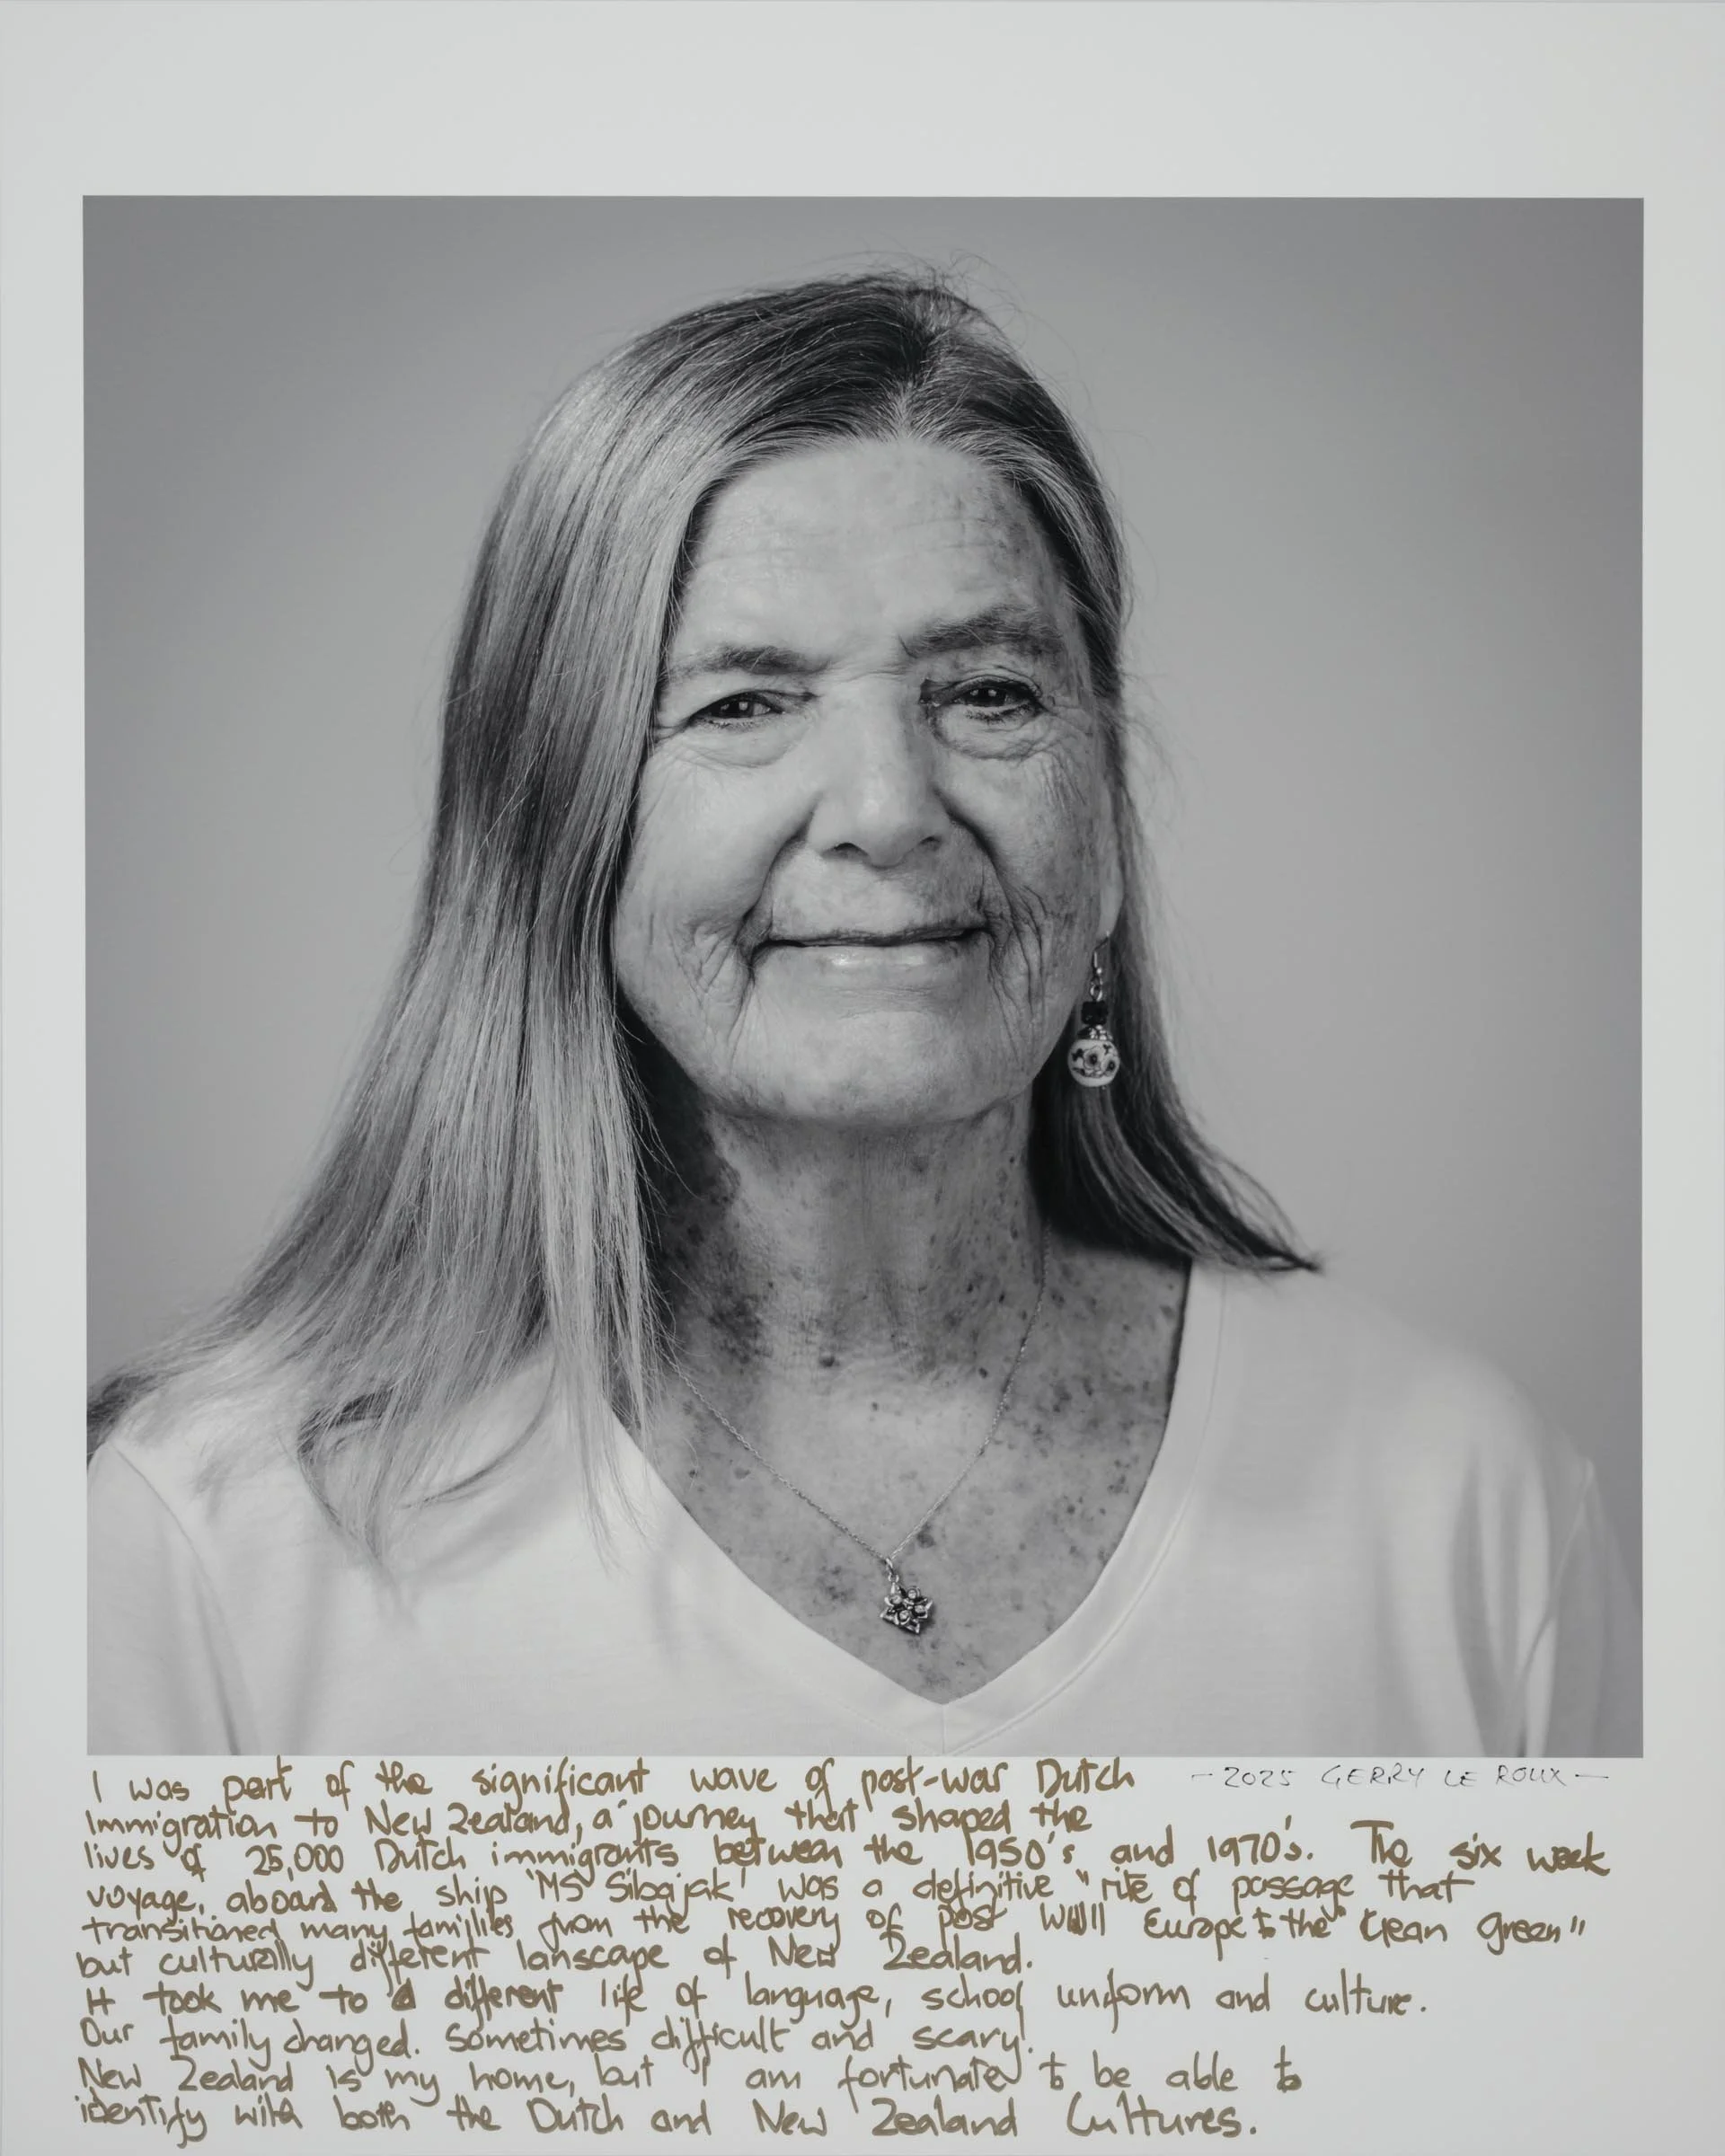 I was part of the significant wave of post-war Dutch
- 2025 GERRY LE ROUX -
Immigration to New Zealand, a journey that shaped the
lives of 25,000 Dutch immigrants between the 1950's and 1970's. The six week
voyage, aboard the ship 'MS Sibajak' was a definitive "rite of passage that
transitioned many familiies from the recovery of post WWII Europe to the "clean green"
but culturally different lanscape of New Zealand.
It took me to a different life of language, school uniform and culture.
Our family changed. Sometimes difficult and scary.
New Zealand is my home, but I am fortunate to be able to
identify with both the Dutch and New Zealand Cultures.